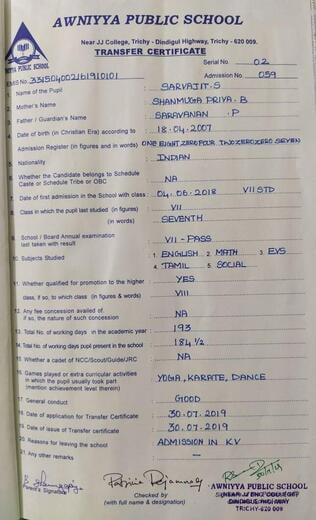 AWNIYYA PUBLIC SCHOOL
Near JJ College, Trichy - Dindigul Highway, Trichy - 620 009.
TRANSFER CERTIFICATE
AWNIYYA PUBLIC SCHOOL
Serial No. : 02
EMIS No: 33150400261910101 Admission No. : 059
1 Name of the Pupil : SARVAJIT.S
2 Mother's Name : SHANMUGA PRIYA.B
3 Father / Guardian's Name : SARAVANAN .P
4 Date of birth (in Christian Era) according to : 18.04.2007
Admission Register (in figures and in words) ONE EIGHT ZERO FOUR TWO ZERO ZERO SEVEN
5 Nationality : INDIAN
6 Whether the Candidate belongs to Schedule
Caste or Schedule Tribe or OBC : NA
7 Date of first admission in the School with class : 04.06.2018 VII STD
8 Class in which the pupil last studied (in figures) : VII
(in words) : SEVENTH
9 School / Board Annual examination
last taken with result : VII - PASS
10 Subjects Studied : 1. ENGLISH 2. MATH 3. EVS
4. TAMIL 5. SOCIAL
11 Whether qualified for promotion to the higher : YES
class, if so, to which class (in figures & words) : VIII
12 Any fee concession availed of.
if so, the nature of such concession : NA
13 Total No. of working days in the academic year : 193
14 Total No. of working days pupil present in the school : 184 1/2
15 Whether a cadet of NCC/Scout/Guide/JRC : NA
16 Games played or extra curricular activities
in which the pupil usually took part
(mention achievement level therein) : YOGA, KARATE, DANCE
17 General conduct : GOOD
18 Date of application for Transfer Certificate : 30.07.2019
19 Date of issue of Transfer certificate : 30.07.2019
20 Reasons for leaving the school : ADMISSION IN KV
21 Any other remarks : —
Parent's Signature
Checked by
(with full name & designation)
AWNIYYA PUBLIC SCHOOL
(NEAR JJ ENG COLLEGE)
DINDIGUL HIGHWAY
TRICHY-620 009